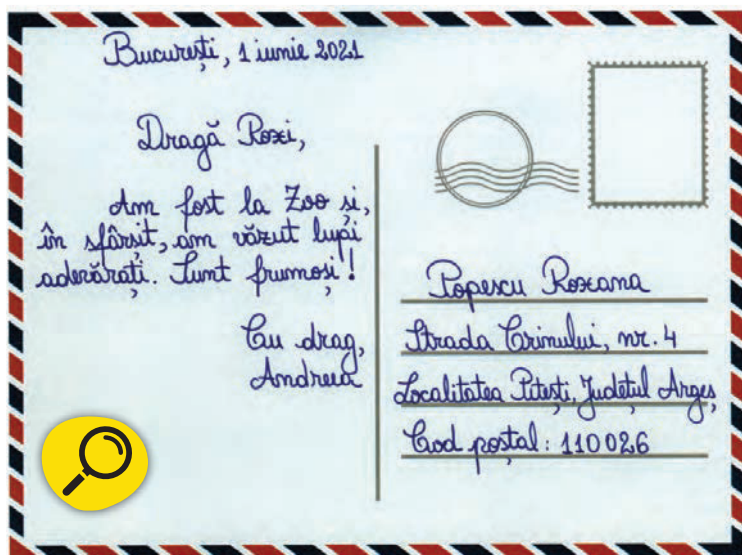 București, 1 iunie 2021
Dragă Roxi,
Am fost la Zoo și,
în sfârșit, am văzut lupi
adevărați. Sunt frumoși!
Cu drag,
Andreea
Popescu Roxana
Strada Crinului, nr. 4
Localitatea Pitești, Județul Argeș
Cod poștal: 110026